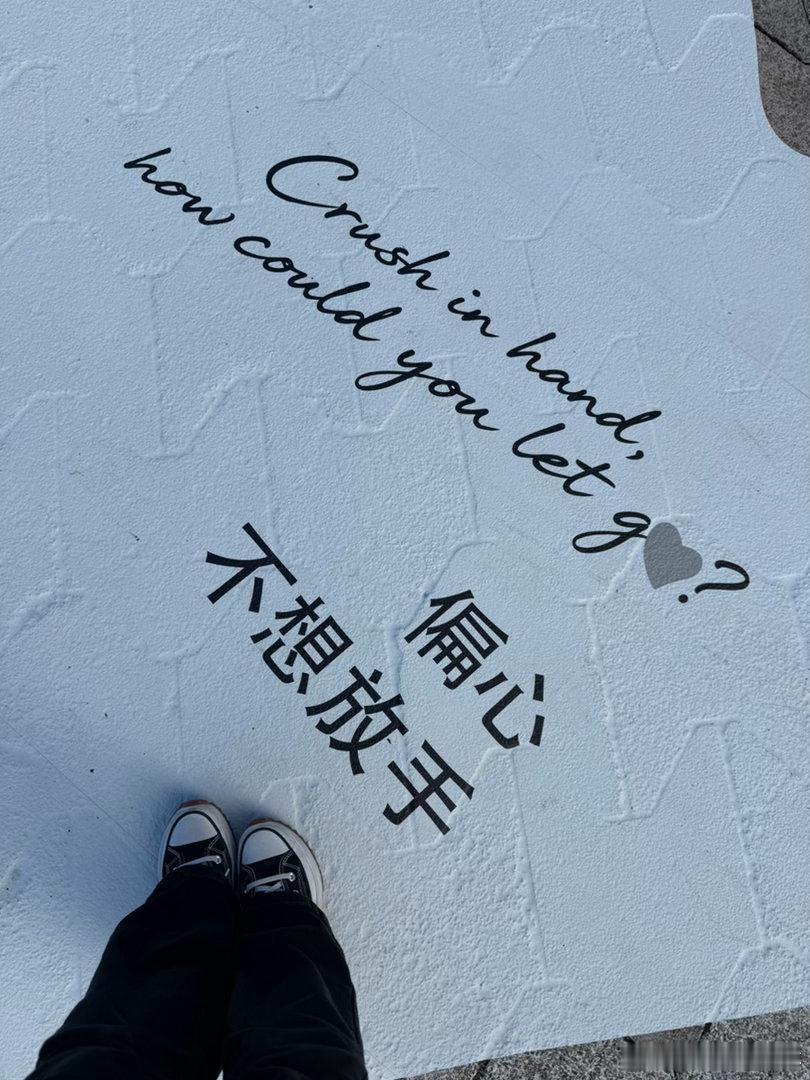 Crush in hand,
how could you let g🩶?
偏心
不想放手